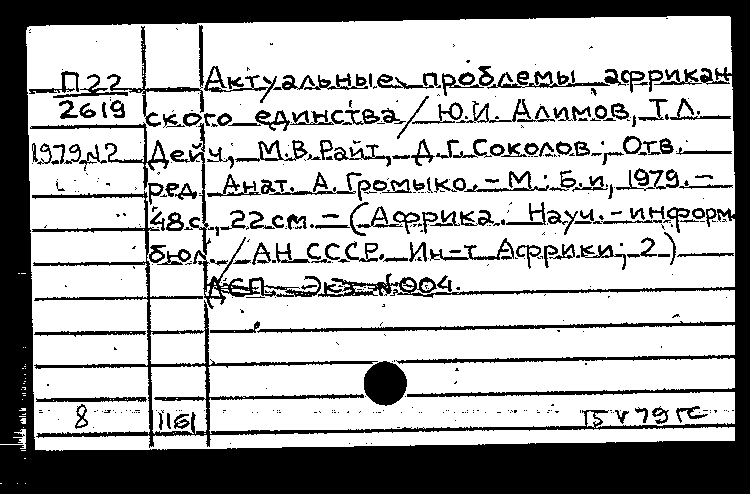 П22 Актуальные проблемы африкан
2619 ского единства / Ю.И. Алимов, Т.Л.
1979 N2 Дейч, М.В. Райт, Д.Г. Соколов; Отв.
ред. Анат. А. Громыко. – М.: Б.и, 1979. –
48с., 22см. – (Африка. Науч.-информ.
бюл. / АН СССР. Ин-т Африки; 2)
ДСП. Экз N004.
8 1161 15 V 79 ГС